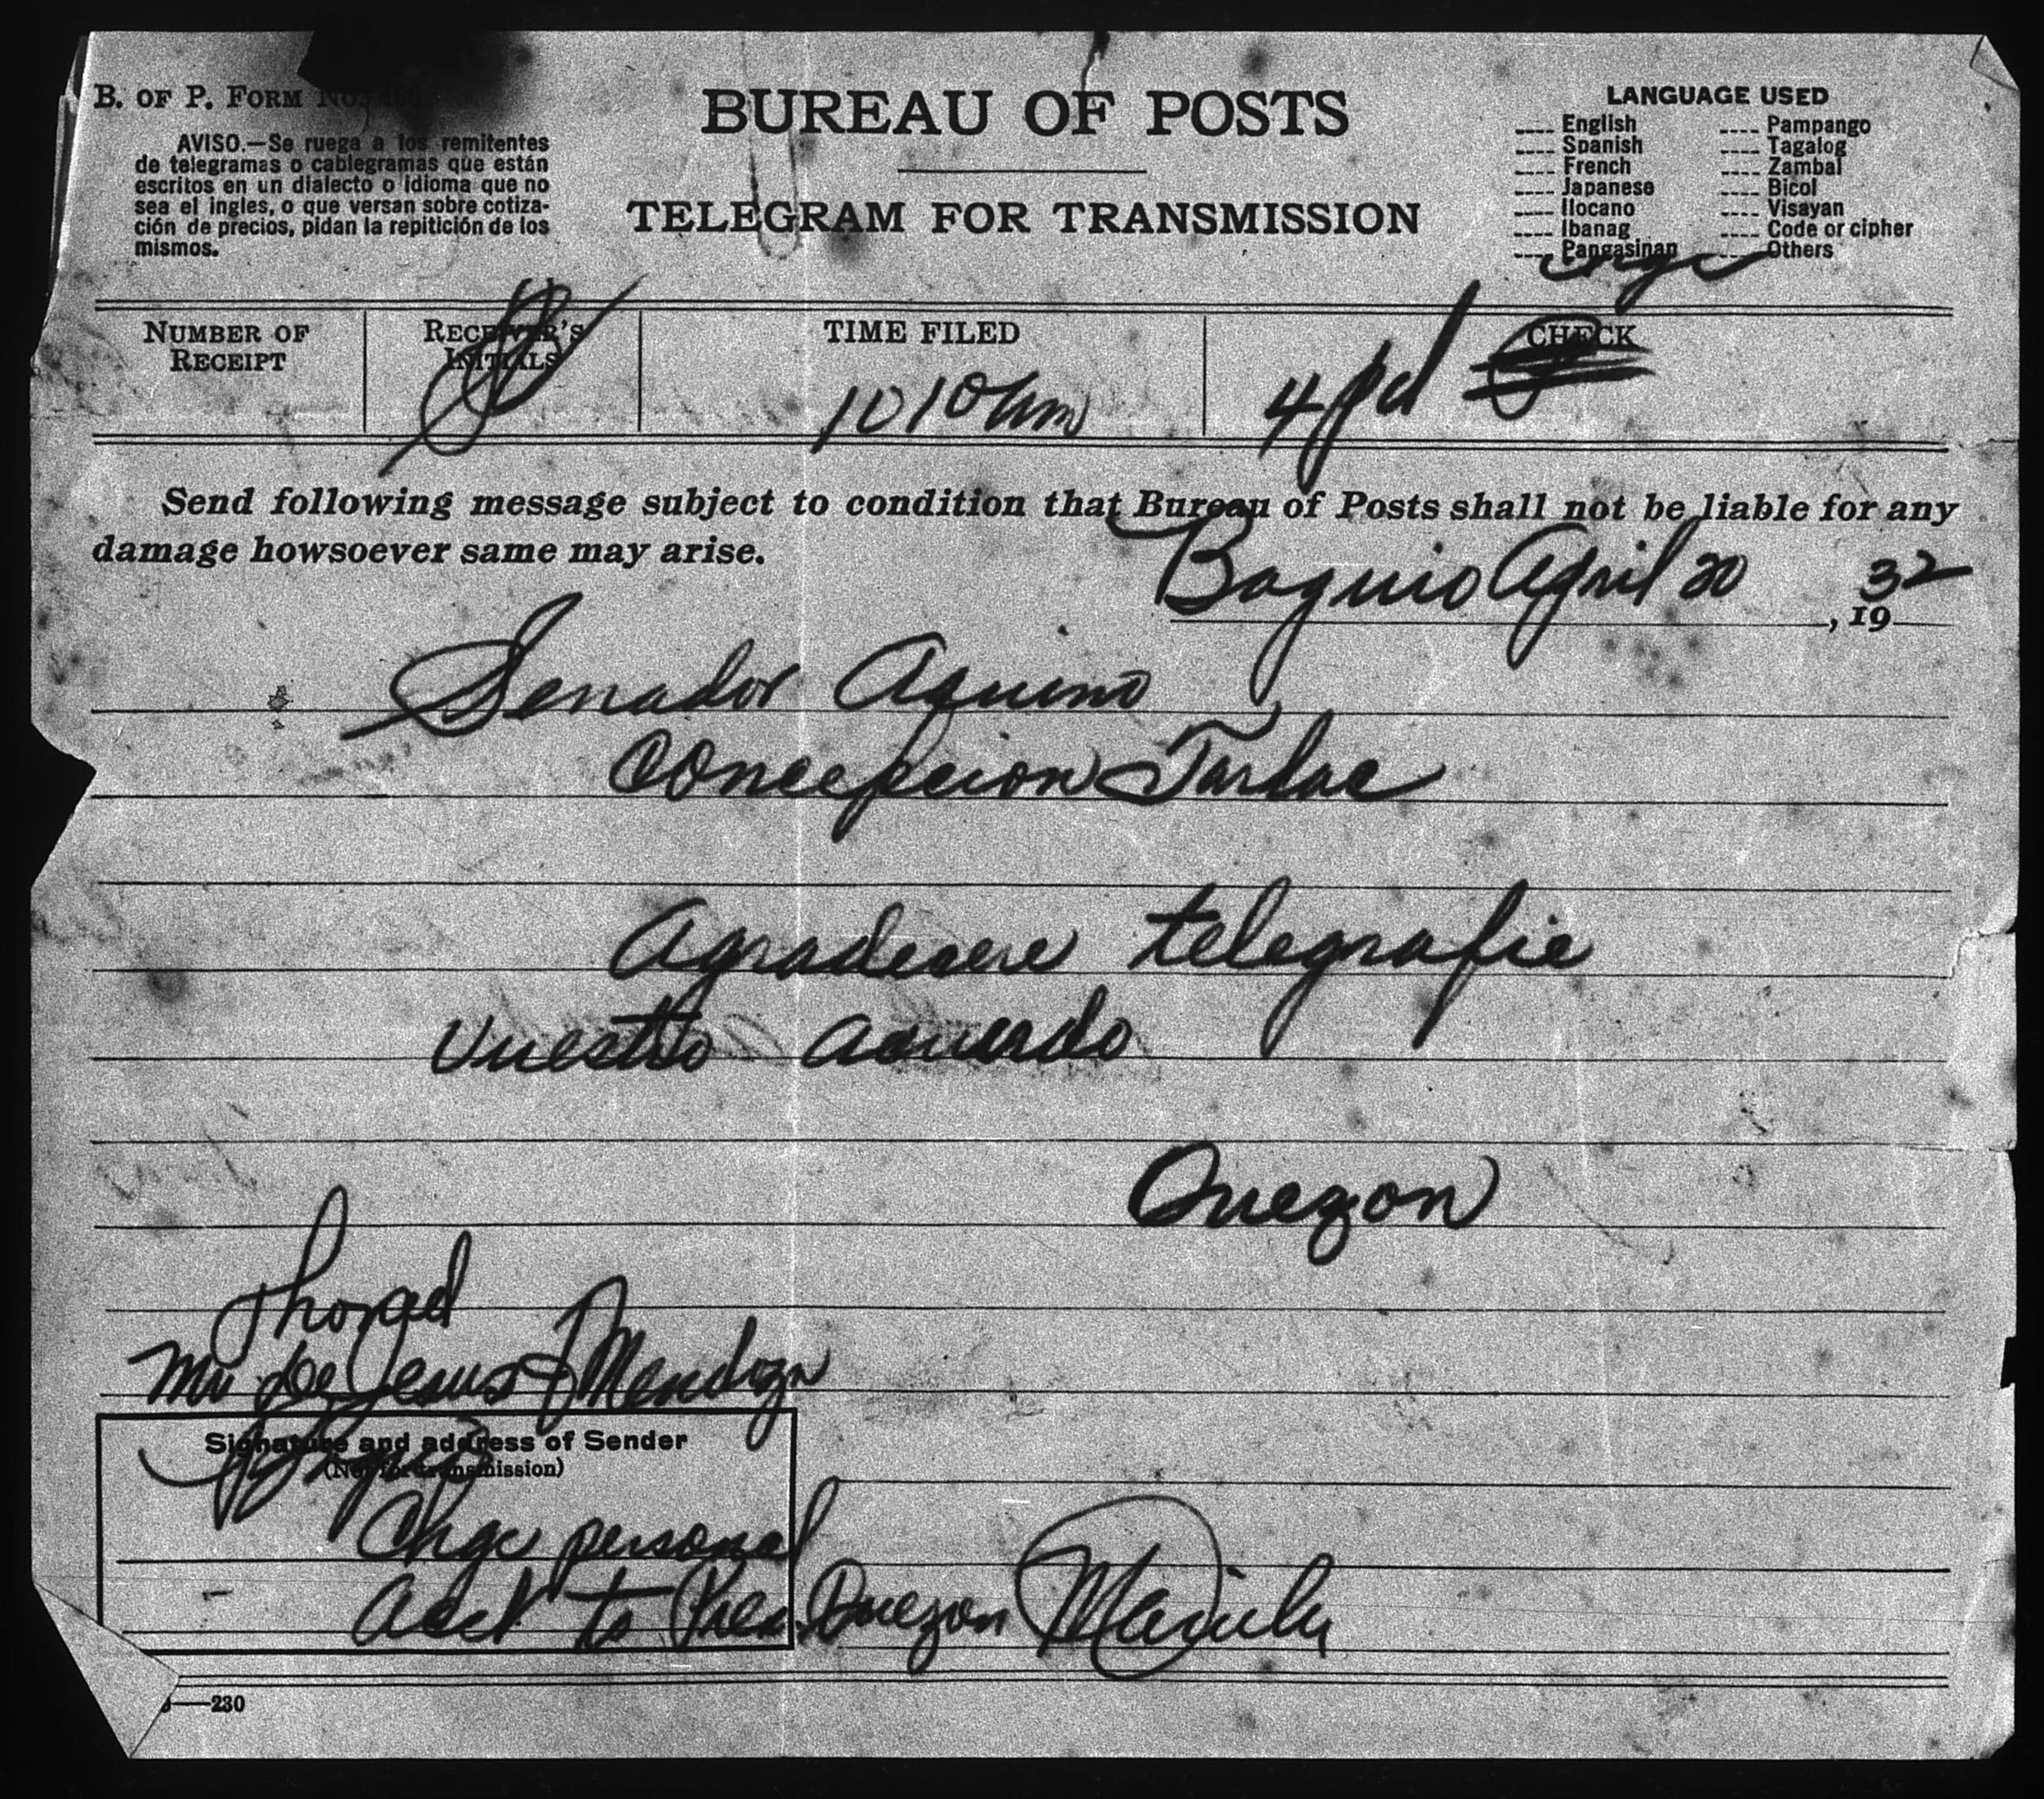 B. OF P. FORM No.
AVISO.—Se ruega a los remitentes
de telegramas o cablegramas que están
escritos en un dialecto o idioma que no
sea el ingles, o que versan sobre cotiza-
ción de precios, pidan la repitición de los
mismos.
BUREAU OF POSTS
TELEGRAM FOR TRANSMISSION
LANGUAGE USED
---- English ---- Pampango
---- Spanish ---- Tagalog
---- French ---- Zambal
---- Japanese ---- Bicol
---- Ilocano ---- Visayan
---- Ibanag ---- Code or cipher
---- Pangasinan ---- Others
NUMBER OF
RECEIPT
RECEIVER'S
INITIALS
TIME FILED
10 10 am
CHECK
4 pd
Send following message subject to condition that Bureau of Posts shall not be liable for any
damage howsoever same may arise.
Baguio April 20, 1932
Senador Aquino
Concepcion Tarlac
Agradecere telegrafie
vuestro acuerdo
Quezon
Phoned
Mr De Jesus Mendoza
Signature and address of Sender
(Not for transmission)
Chge personal
acct to Pres. Quezon Manila
—230